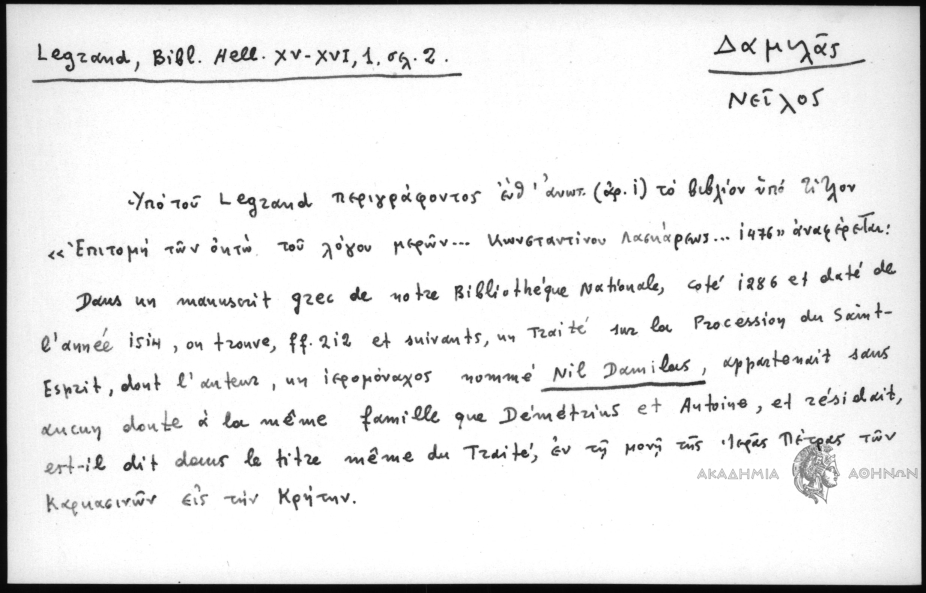 Legrand, Bibl. Hell. XV-XVI, 1, σελ. 2.
Δαμιλᾶς
Νεῖλος
Ὑπὸ τοῦ Legrand περιγράφοντος ἐνθ' ἀνωτ. (ἀρ. 1) τὸ βιβλίον ὑπὸ τίτλον
«Ἐπιτομὴ τῶν ὀκτὼ τοῦ λόγου μερῶν... Κωνσταντίνου Λασκάρεως... 1476» ἀναφέρεται:
Dans un manuscrit grec de notre Bibliothéque Nationale, coté 1286 et daté de
l'année 1514, on trouve, ff. 212 et suivants, un Traité sur la Procession du Saint-
Esprit, dont l'auteur, un ἱερομόναχος nommé Nil Damilas, appartenait sans
aucun doute à la même famille que Démétrius et Antoine, et résidait,
est-il dit dans le titre même du Traité, ἐν τῇ μονῇ τῆς Ἱερᾶς Πέτρας τῶν
Καρκασινῶν εἰς τὴν Κρήτην.
ΑΚΑΔΗΜΙΑ ΑΘΗΝΩΝ